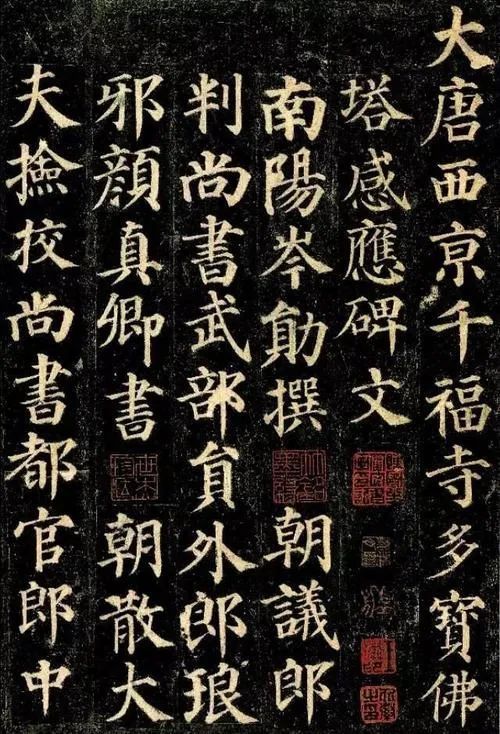 大唐西京千福寺多寳佛
塔感應碑文
南陽岑勛撰 朝議郎
判尚書武部貟外郎琅
邪顔真卿書 朝散大
夫撿挍尚書都官郎中